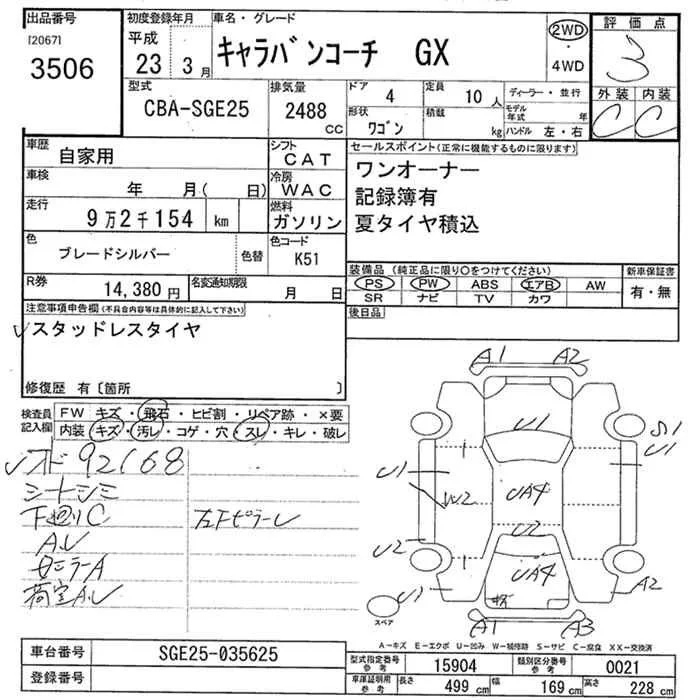 出品番号 初度登録年月 車名・グレード 評価点
[2067] 平成 2WD
3506 23年 3月 キャラバンコーチ GX ・ 3
4WD
型式 排気量 ドア 4 定員 10人 ディーラー・並行 外装 内装
CBA-SGE25 2488 cc 形状 ワゴン 積載 kg モデル年式 年 C C
ハンドル 左・右
車歴 自家用 シフト CAT セールスポイント(正常に機能するものに限ります)
車検 年 月( 日) 冷房 WAC ワンオーナー
走行 9万2千154 km 燃料 ガソリン 記録簿有
夏タイヤ積込
色 ブレードシルバー 色替 色コード K51
装備品(純正品に限り○をつけてください) 新車保証書
R券 14,380円 名変通知期限 月 日 PS PW ABS エアB AW 有・無
SR ナビ TV カワ
注意事項申告欄(不具合内容等は具体的に記入して下さい) 後日品
スタッドレスタイヤ
修復歴 有〔箇所 〕
検査員記入欄 FW キズ・飛石・ヒビ割・リペア跡・×要
内装 キズ・汚レ・コゲ・穴・スレ・キレ・破レ
92168
シートシミ
下廻りC
左Fピラーレ
A.レ
荷室A.レ
A1 A2
U1
S1
U1
U1
W2 UA4
U2
U2
UA4
U1 A2
A1 A3
スペア
A-キズ E-エクボ U-凹み W-補修跡 S-サビ C-腐食 XX-交換済
車台番号 SGE25-035625
型式指定番号 参考 15904 類別区分番号 参考 0021
登録番号
車庫証明用 参考 長さ 499 cm 幅 169 cm 高さ 228 cm